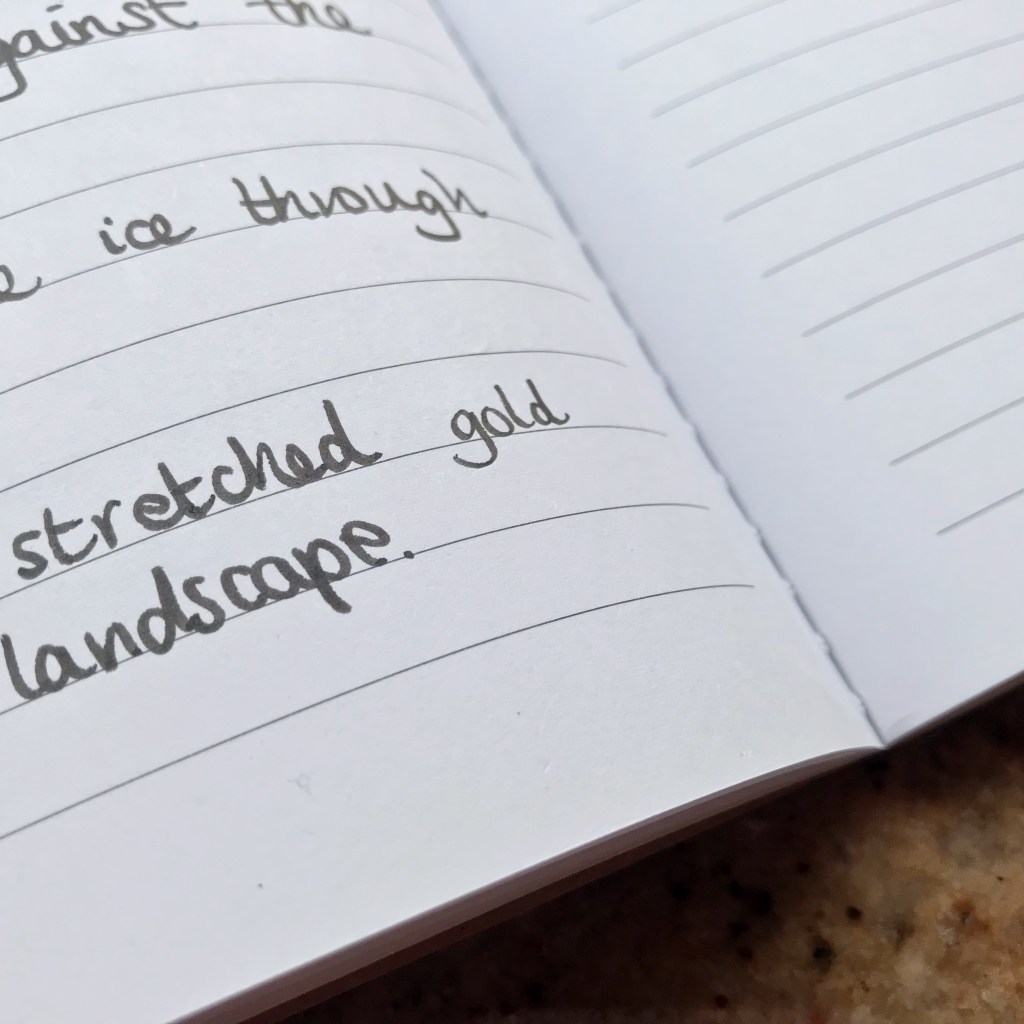 the
ice through
stretched gold
landscape.